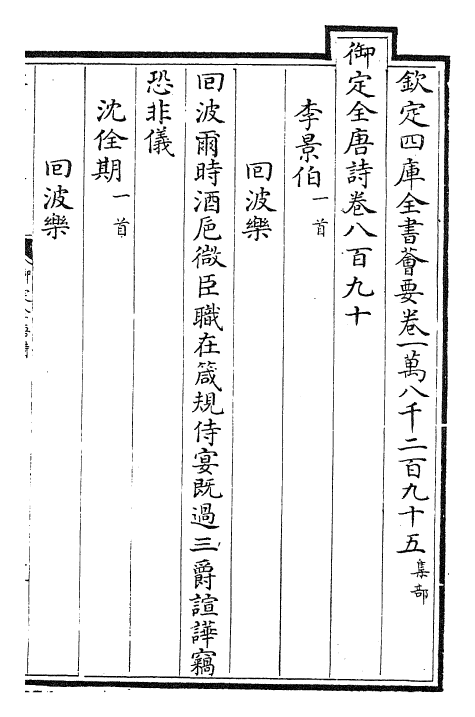 欽定四庫全書薈要卷一萬八千二百九十五集部
御定全唐詩卷八百九十
李景伯一首
回波樂
回波爾時酒巵微臣職在箴規侍宴既過三爵諠譁竊
恐非儀
沈佺期一首
回波樂